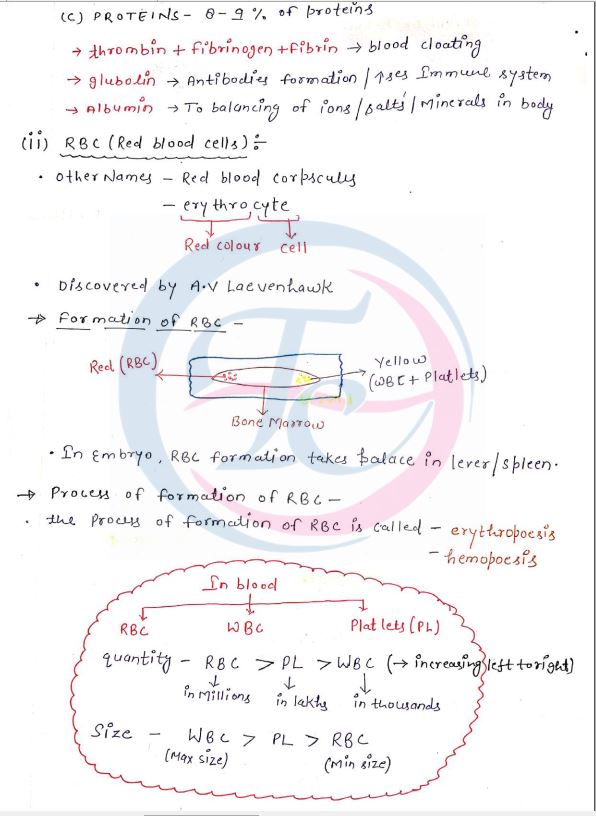 (C) PROTEINS - 8-9 % of proteins
→ thrombin + fibrinogen + fibrin → blood cloating
→ glubolin → Antibodies formation / ↑ses Immune system
→ Albumin → To balancing of ions/salts/Minerals in body
(ii) RBC (Red blood cells) ÷
• Other Names - Red blood corpsculys
- erythrocyte
Red colour cell
• Discovered by A.V Laevenhawk
→ Formation of RBC -
Red (RBC)
Yellow
(WBC + Platlets)
Bone Marrow
• In Embryo, RBC formation takes palace in lever/spleen.
→ Process of formation of RBC -
• the Process of formation of RBC is called - erythropoesis
- hemopoesis
In blood
RBC WBC Platlets (PL)
quantity - RBC > PL > WBC (→ increasing left to right)
in Millions in lakhs in thousands
Size - WBC > PL > RBC
(Max size) (Min size)